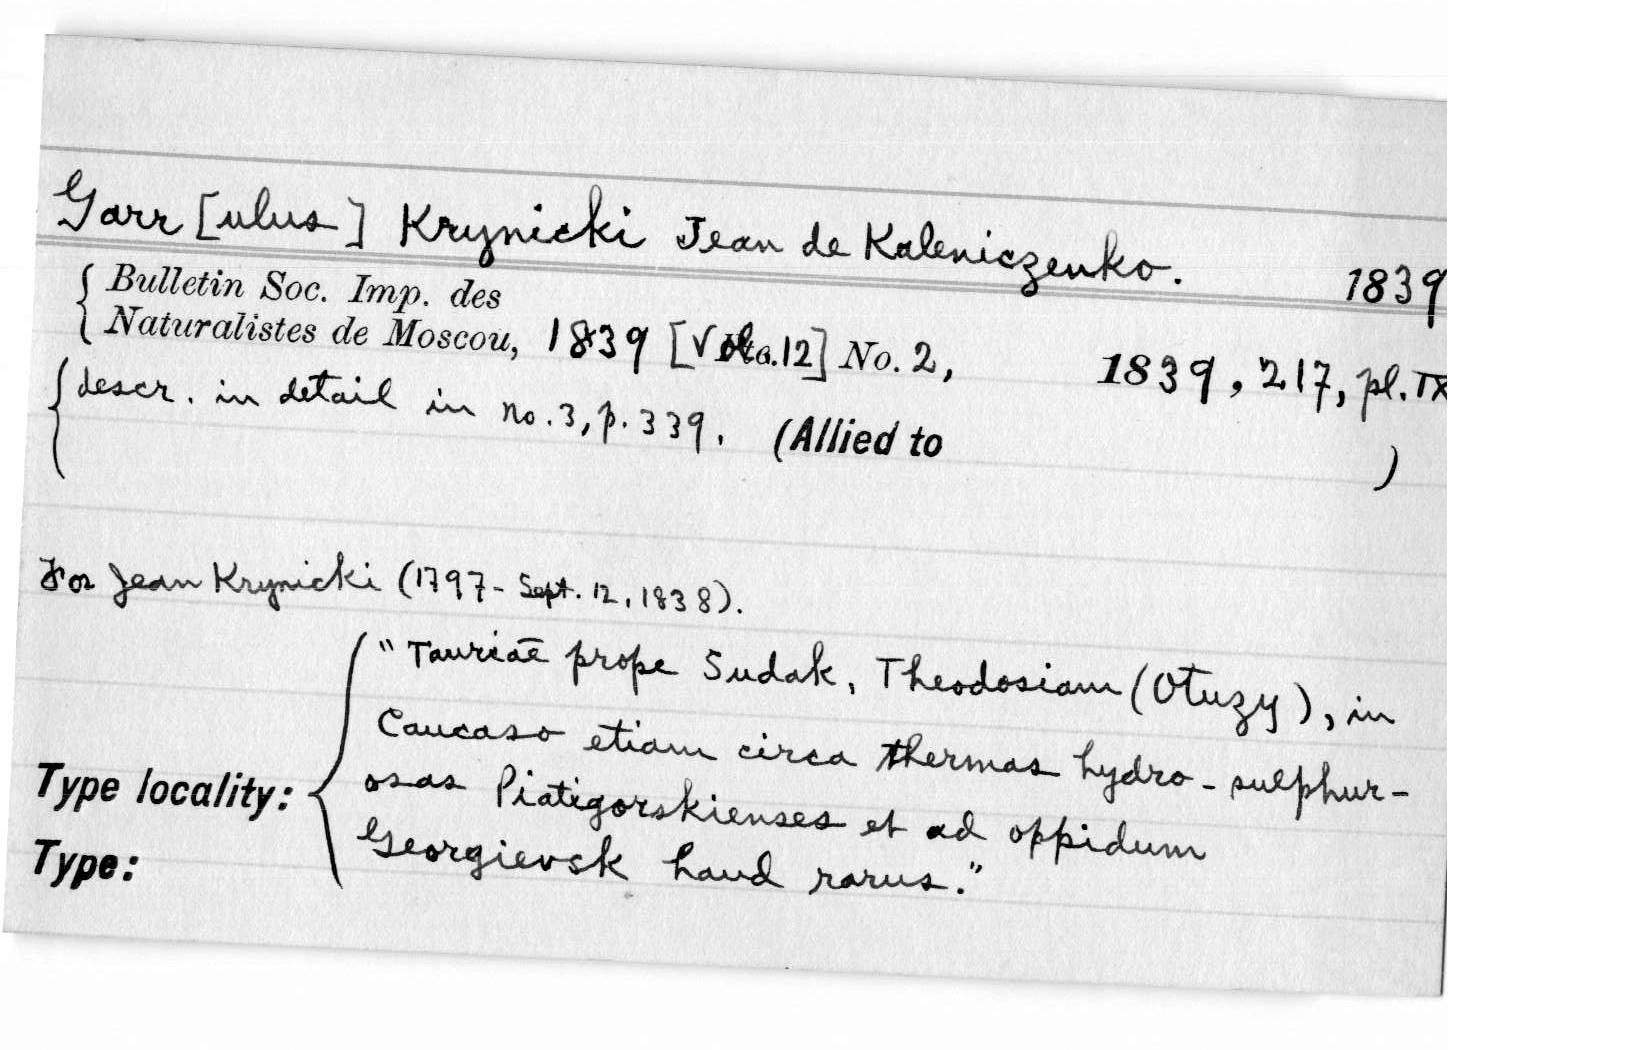 Garr [ulus] Krynicki Jean de Kaleniczenko. 1839
Bulletin Soc. Imp. des
Naturalistes de Moscou, 1839 [Vol.12] No. 2, 1839, 217, pl. IX
descr. in detail in no. 3, p. 339. (Allied to )
For Jean Krynicki (1797 - Sept. 12, 1838).
"Tauriāe prope Sudak, Theodosiam (Otuzy), in
Caucaso etiam circa thermas hydro-sulphur-
Type locality: osas Piatigorskienses et ad oppidum
Type: Georgievsk haud rarus."